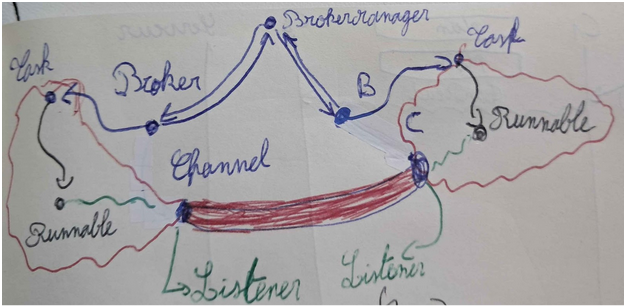 Brokermanager
Task
Task
Broker
B
C
Runnable
Channel
Runnable
Listener
Listener